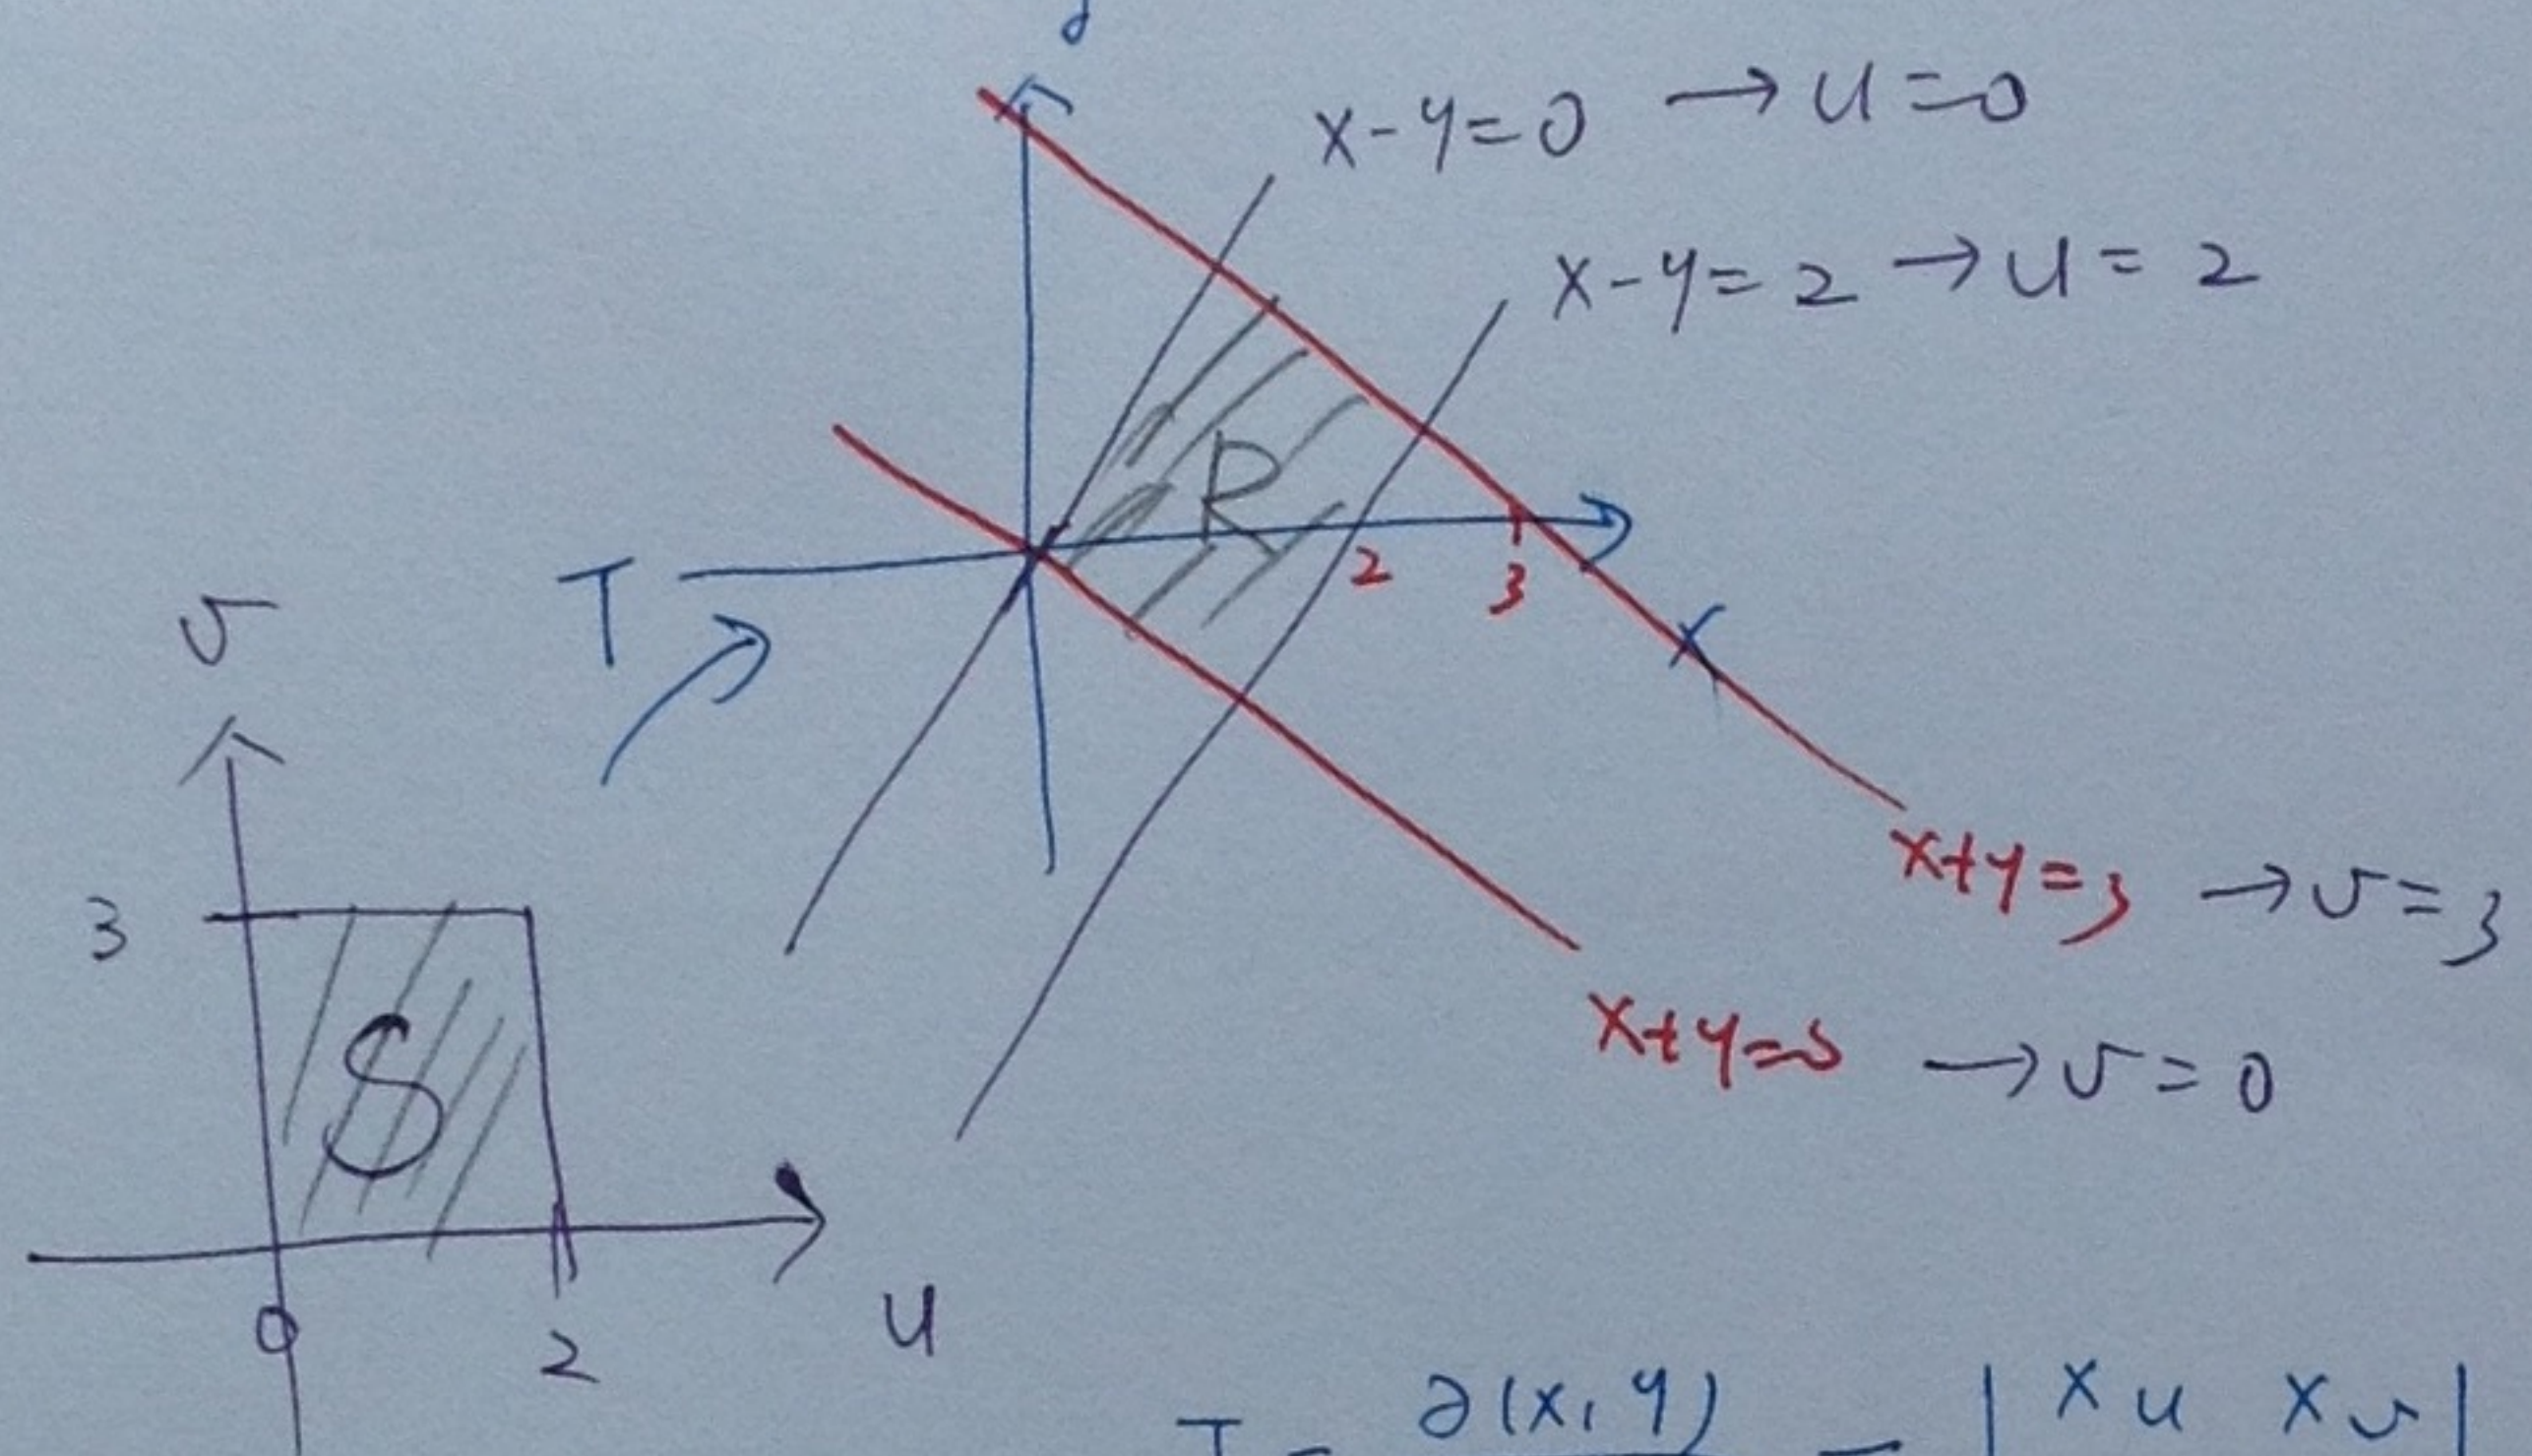 x-y=0 → u=0
x-y=2 → u=2
R
T
2
3
x
v
x+y=3 → v=3
3
x+y=0 → v=0
S
0
2
u
∂(x,y)
= | xu xv |